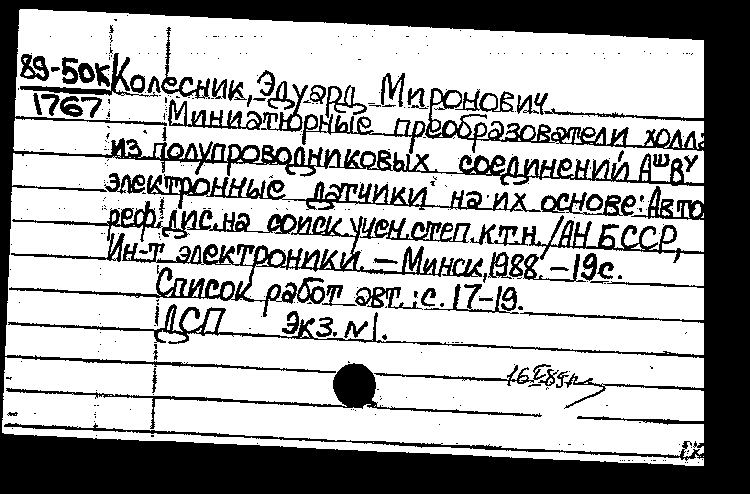 89-50к Колесник, Эдуард Миронович.
1767 Миниатюрные преобразователи холла
из полупроводниковых соединений AᴵᴵᴵBⱽ
электронные датчики на их основе: Авто
реф. дис. на соиск. учен. степ. к.т.н. / АН БССР,
Ин-т электроники. — Минск, 1988. — 19с.
Список работ авт.: с. 17-19.
ДСП Экз. N1.